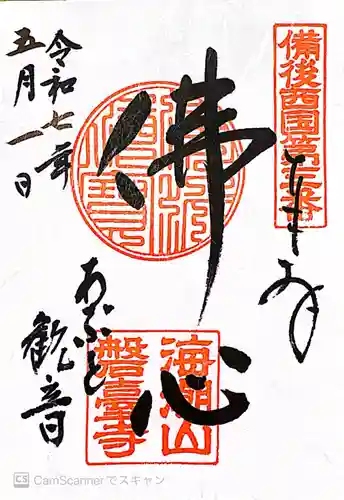 備後西国第三番
奉拝
佛心
令和七年
五月一日
あぶと
観音
海潮山
磐臺寺
CS CamScannerでスキャン